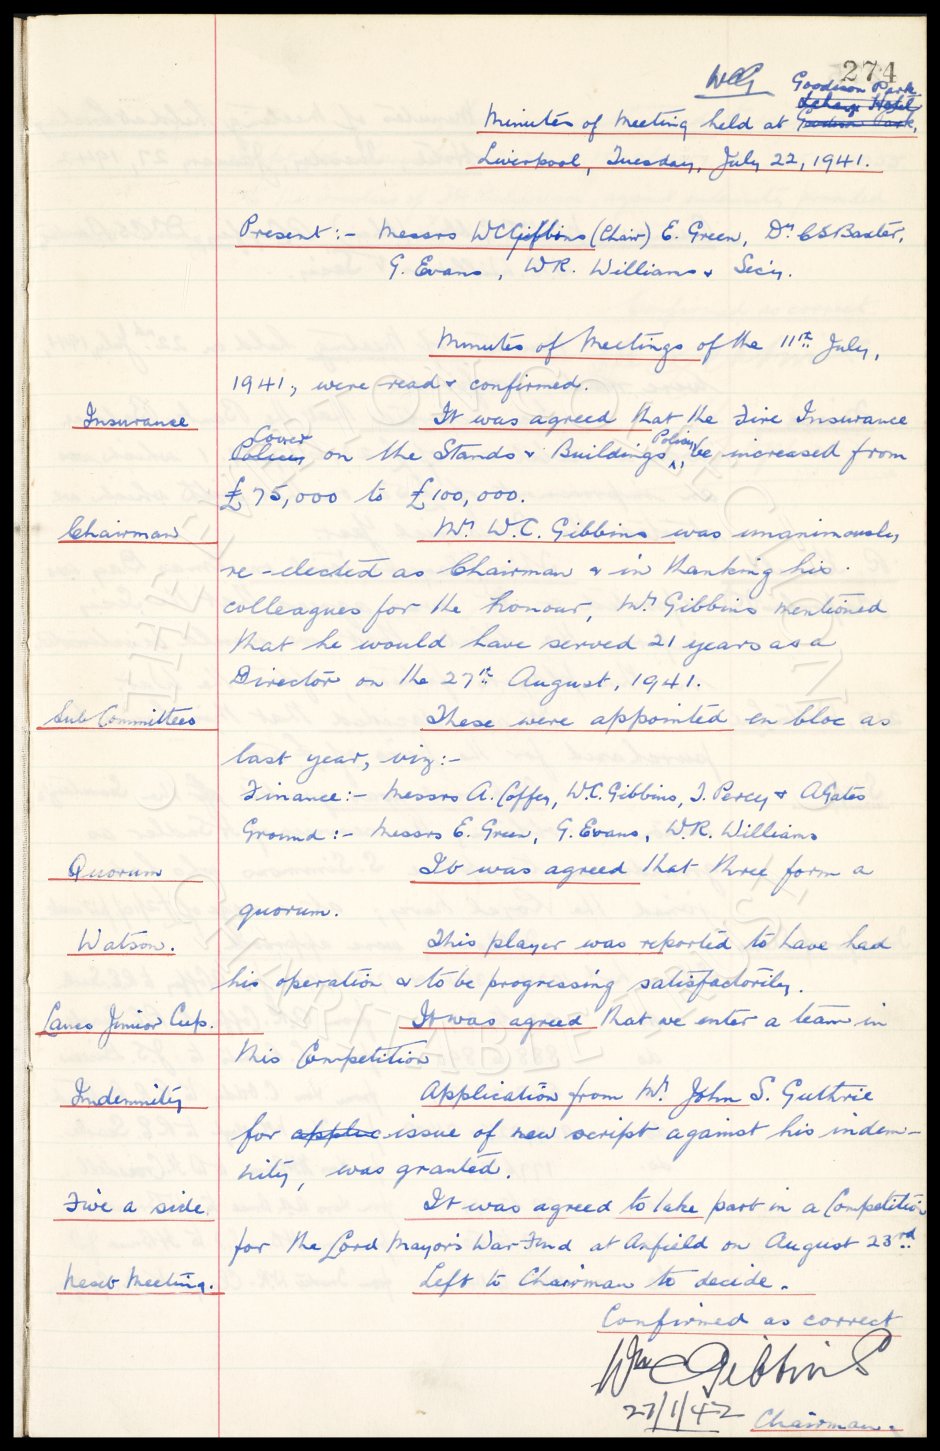 274
WCG Goodison Park
Lahays Hotel
Minutes of Meeting held at Goodison Park,
Liverpool, Tuesday, July 22, 1941.
Present:- Messrs W C Gibbins (Chair) E. Green, Dr. C S Baxter,
G. Evans, W R. Williams & Sec'y.
Minutes of Meetings of the 11th July,
1941, were read & confirmed.
Insurance It was agreed that the Fire Insurance
Cover
Policy on the Stands & Buildings Policy be increased from
£75,000 to £100,000.
Chairman Mr. W.C. Gibbins was unanimously
re-elected as Chairman & in thanking his
colleagues for the honour, Mr. Gibbins mentioned
that he would have served 21 years as a
Director on the 27th August, 1941.
Sub Committees These were appointed en bloc as
last year, viz:-
Finance:- Messrs A. Coffey, W.C. Gibbins, T. Percy & A Gates
Ground:- Messrs E. Green, G. Evans, W.R. Williams
Quorum It was agreed that three form a
quorum.
Watson. This player was reported to have had
his operation & to be progressing satisfactorily.
Lancs Junior Cup. It was agreed that we enter a team in
this Competition
Indemnity Application from Mr. John S. Guthrie
for applic issue of new script against his indem-
nity, was granted.
Five a side. It was agreed to take part in a Competition
for the Lord Mayor's War Fund at Anfield on August 23rd.
Next Meeting. Left to Chairman to decide.
Confirmed as correct
Wm C Gibbins
27/1/42 Chairman.